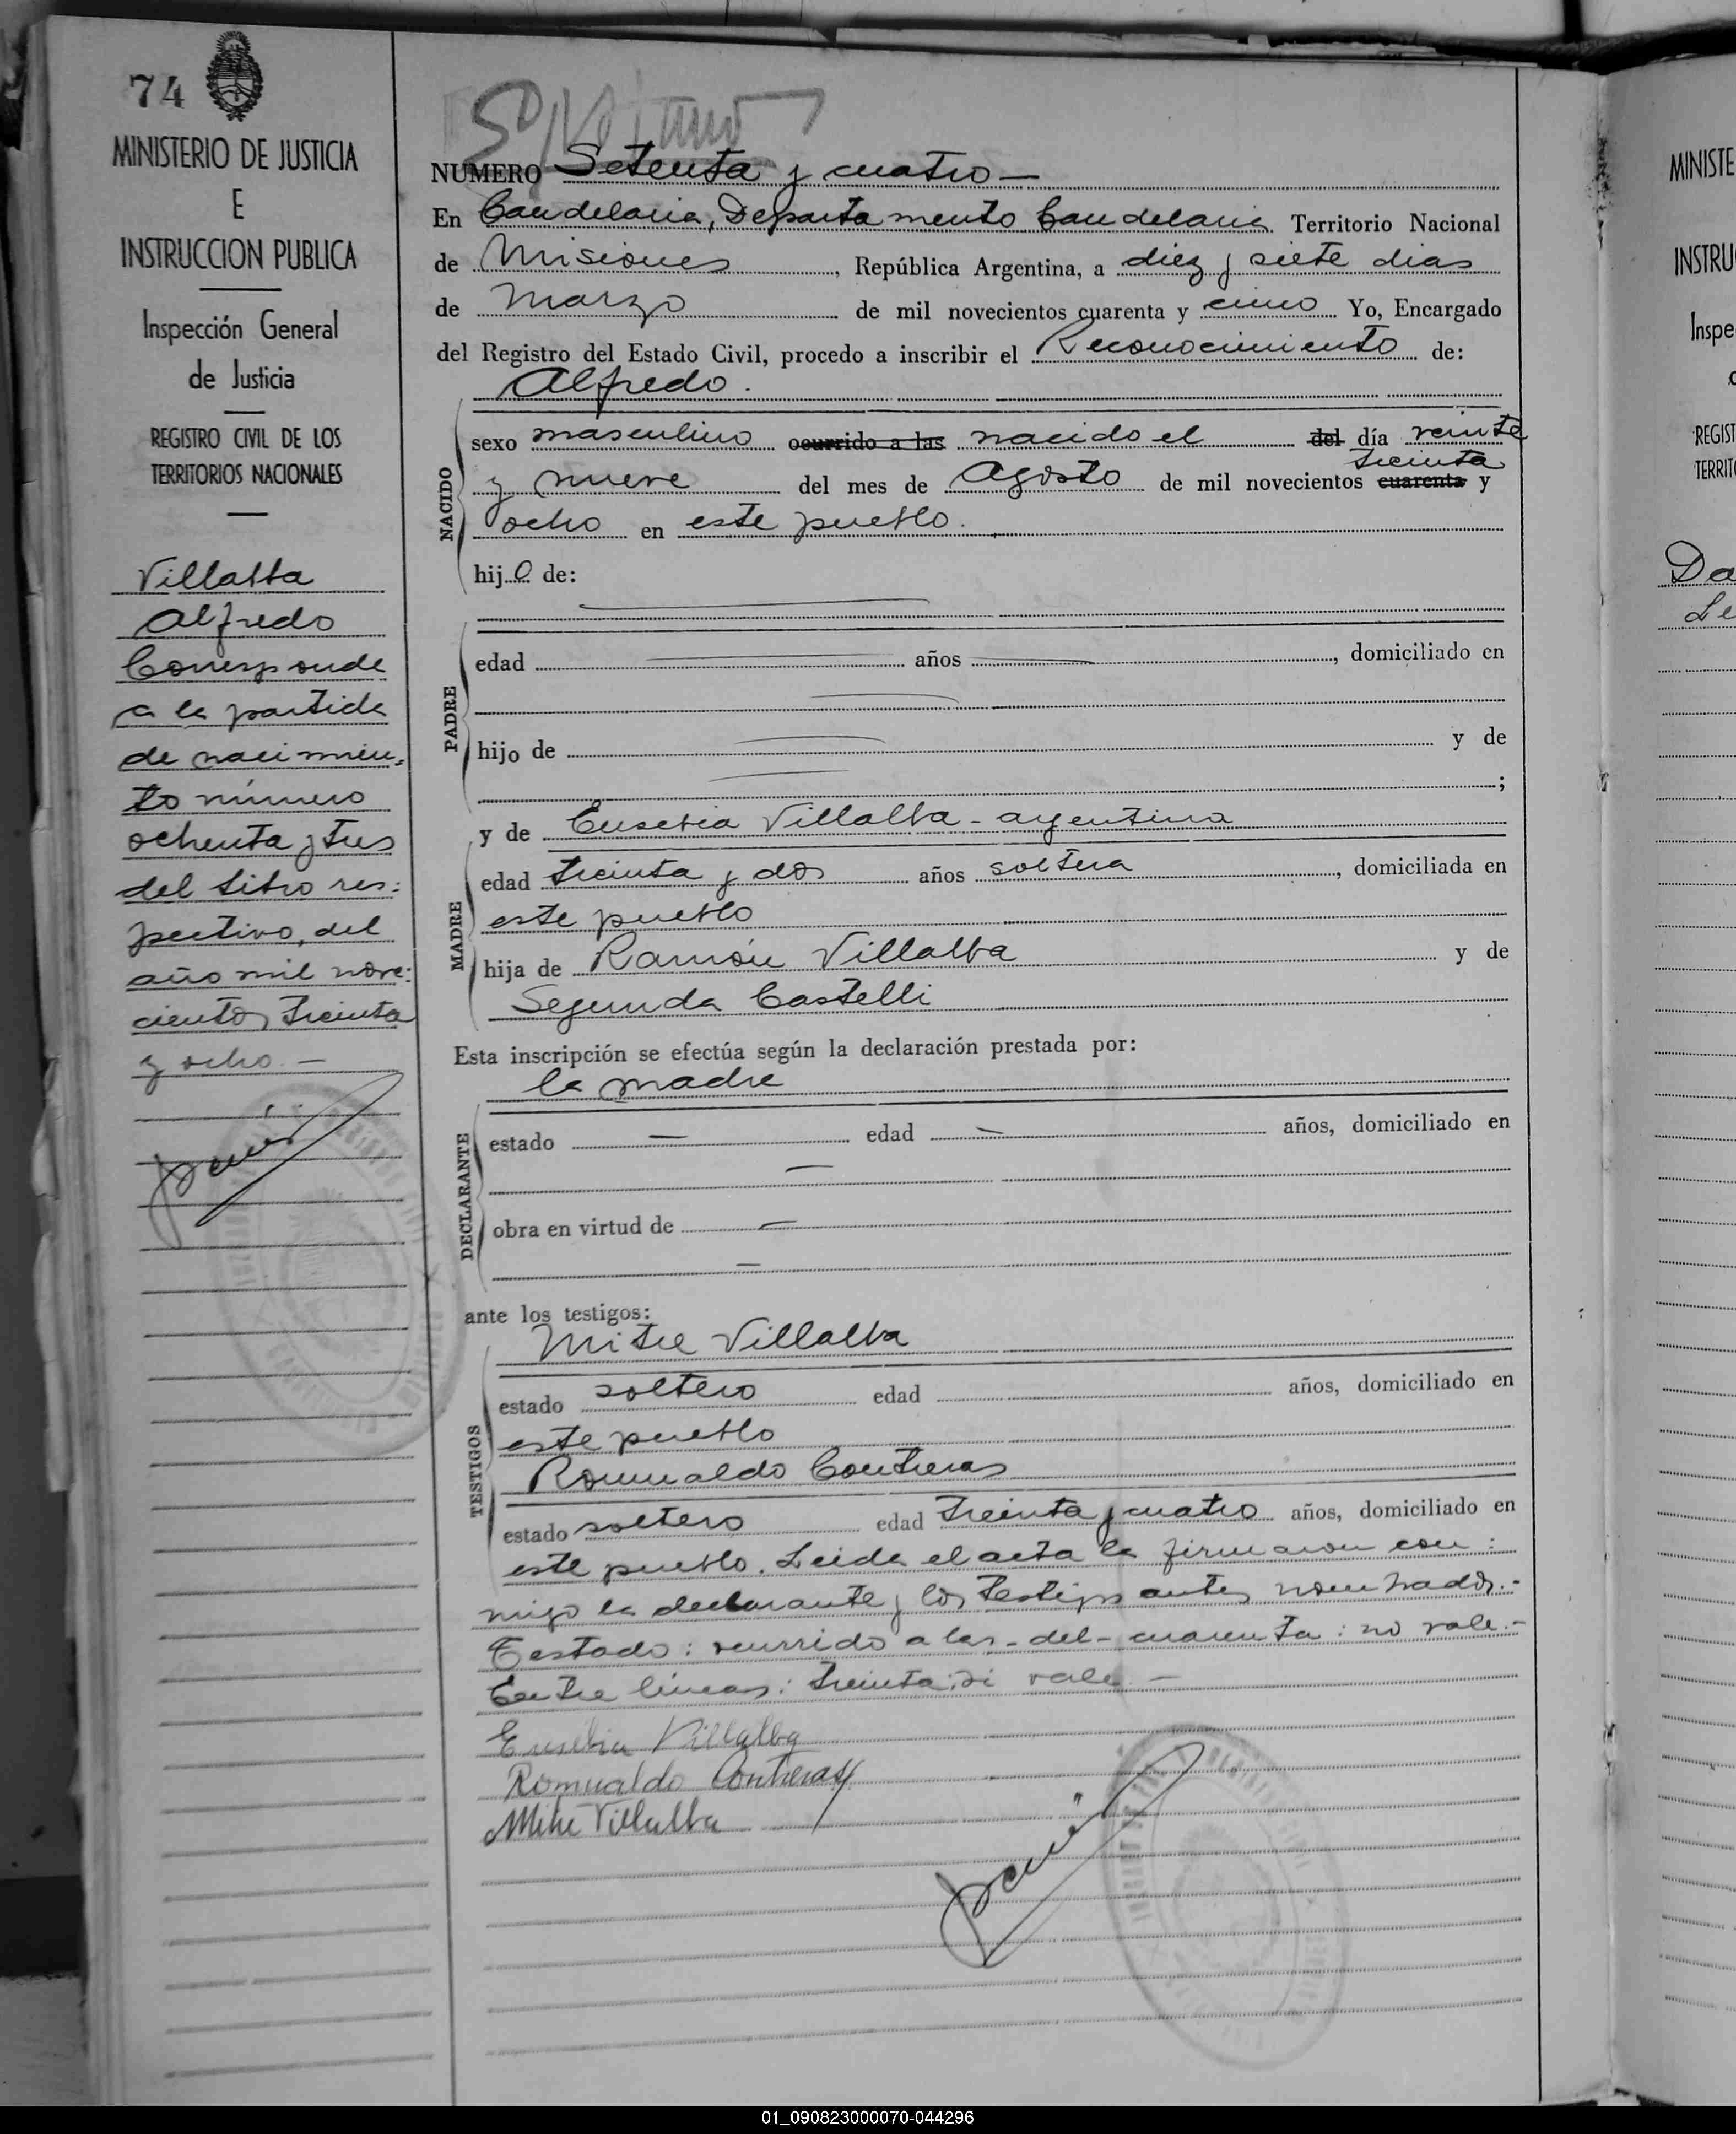 74
MINISTERIO DE JUSTICIA
E
INSTRUCCION PUBLICA
Inspección General
de Justicia
REGISTRO CIVIL DE LOS
TERRITORIOS NACIONALES
Villalba
Alfredo
Corresponde
a la partida
de nacimien,
to número
ochenta y tres
del libro res:
pectivo, del
año mil nove:
cientos treinta
y ocho. —
NUMERO Setenta y cuatro —
En Candelaria, Departamento Candelaria Territorio Nacional
de Misiones, República Argentina, a diez y siete dias
de Marzo de mil novecientos cuarenta y cinco Yo, Encargado
del Registro del Estado Civil, procedo a inscribir el Reconocimiento de:
Alfredo.
NACIDO
sexo masculino ocurrido a las nacido el del día veinte
treinta
y nueve del mes de Agosto de mil novecientos cuarenta y
ocho en este pueblo.
hijo de:
PADRE
edad años , domiciliado en
hijo de y de
;
MADRE
y de Eusebia Villalba - argentina
edad treinta y dos años soltera, domiciliada en
este pueblo
hija de Ramón Villalba y de
Segunda Castelli
Esta inscripción se efectúa según la declaración prestada por:
la madre
DECLARANTE
estado — edad — años, domiciliado en
—
obra en virtud de —
—
ante los testigos:
Mitre Villalba
TESTIGOS
estado soltero edad años, domiciliado en
este pueblo
Romualdo Contreras
estado soltero edad treinta y cuatro años, domiciliado en
este pueblo. Leida el acta la firmaron con:
migo la declarante y los testigos antes nombrados.-
Testado: ocurrido a las - del - cuarenta: no vale.-
Entre líneas: treinta: si vale —
Eusebia Villalba
Romualdo Contreras
Mitre Villalba
MINISTE
INSTRU
Inspe
REGIST
TERRIT
Da
Le
01_090823000070-044296